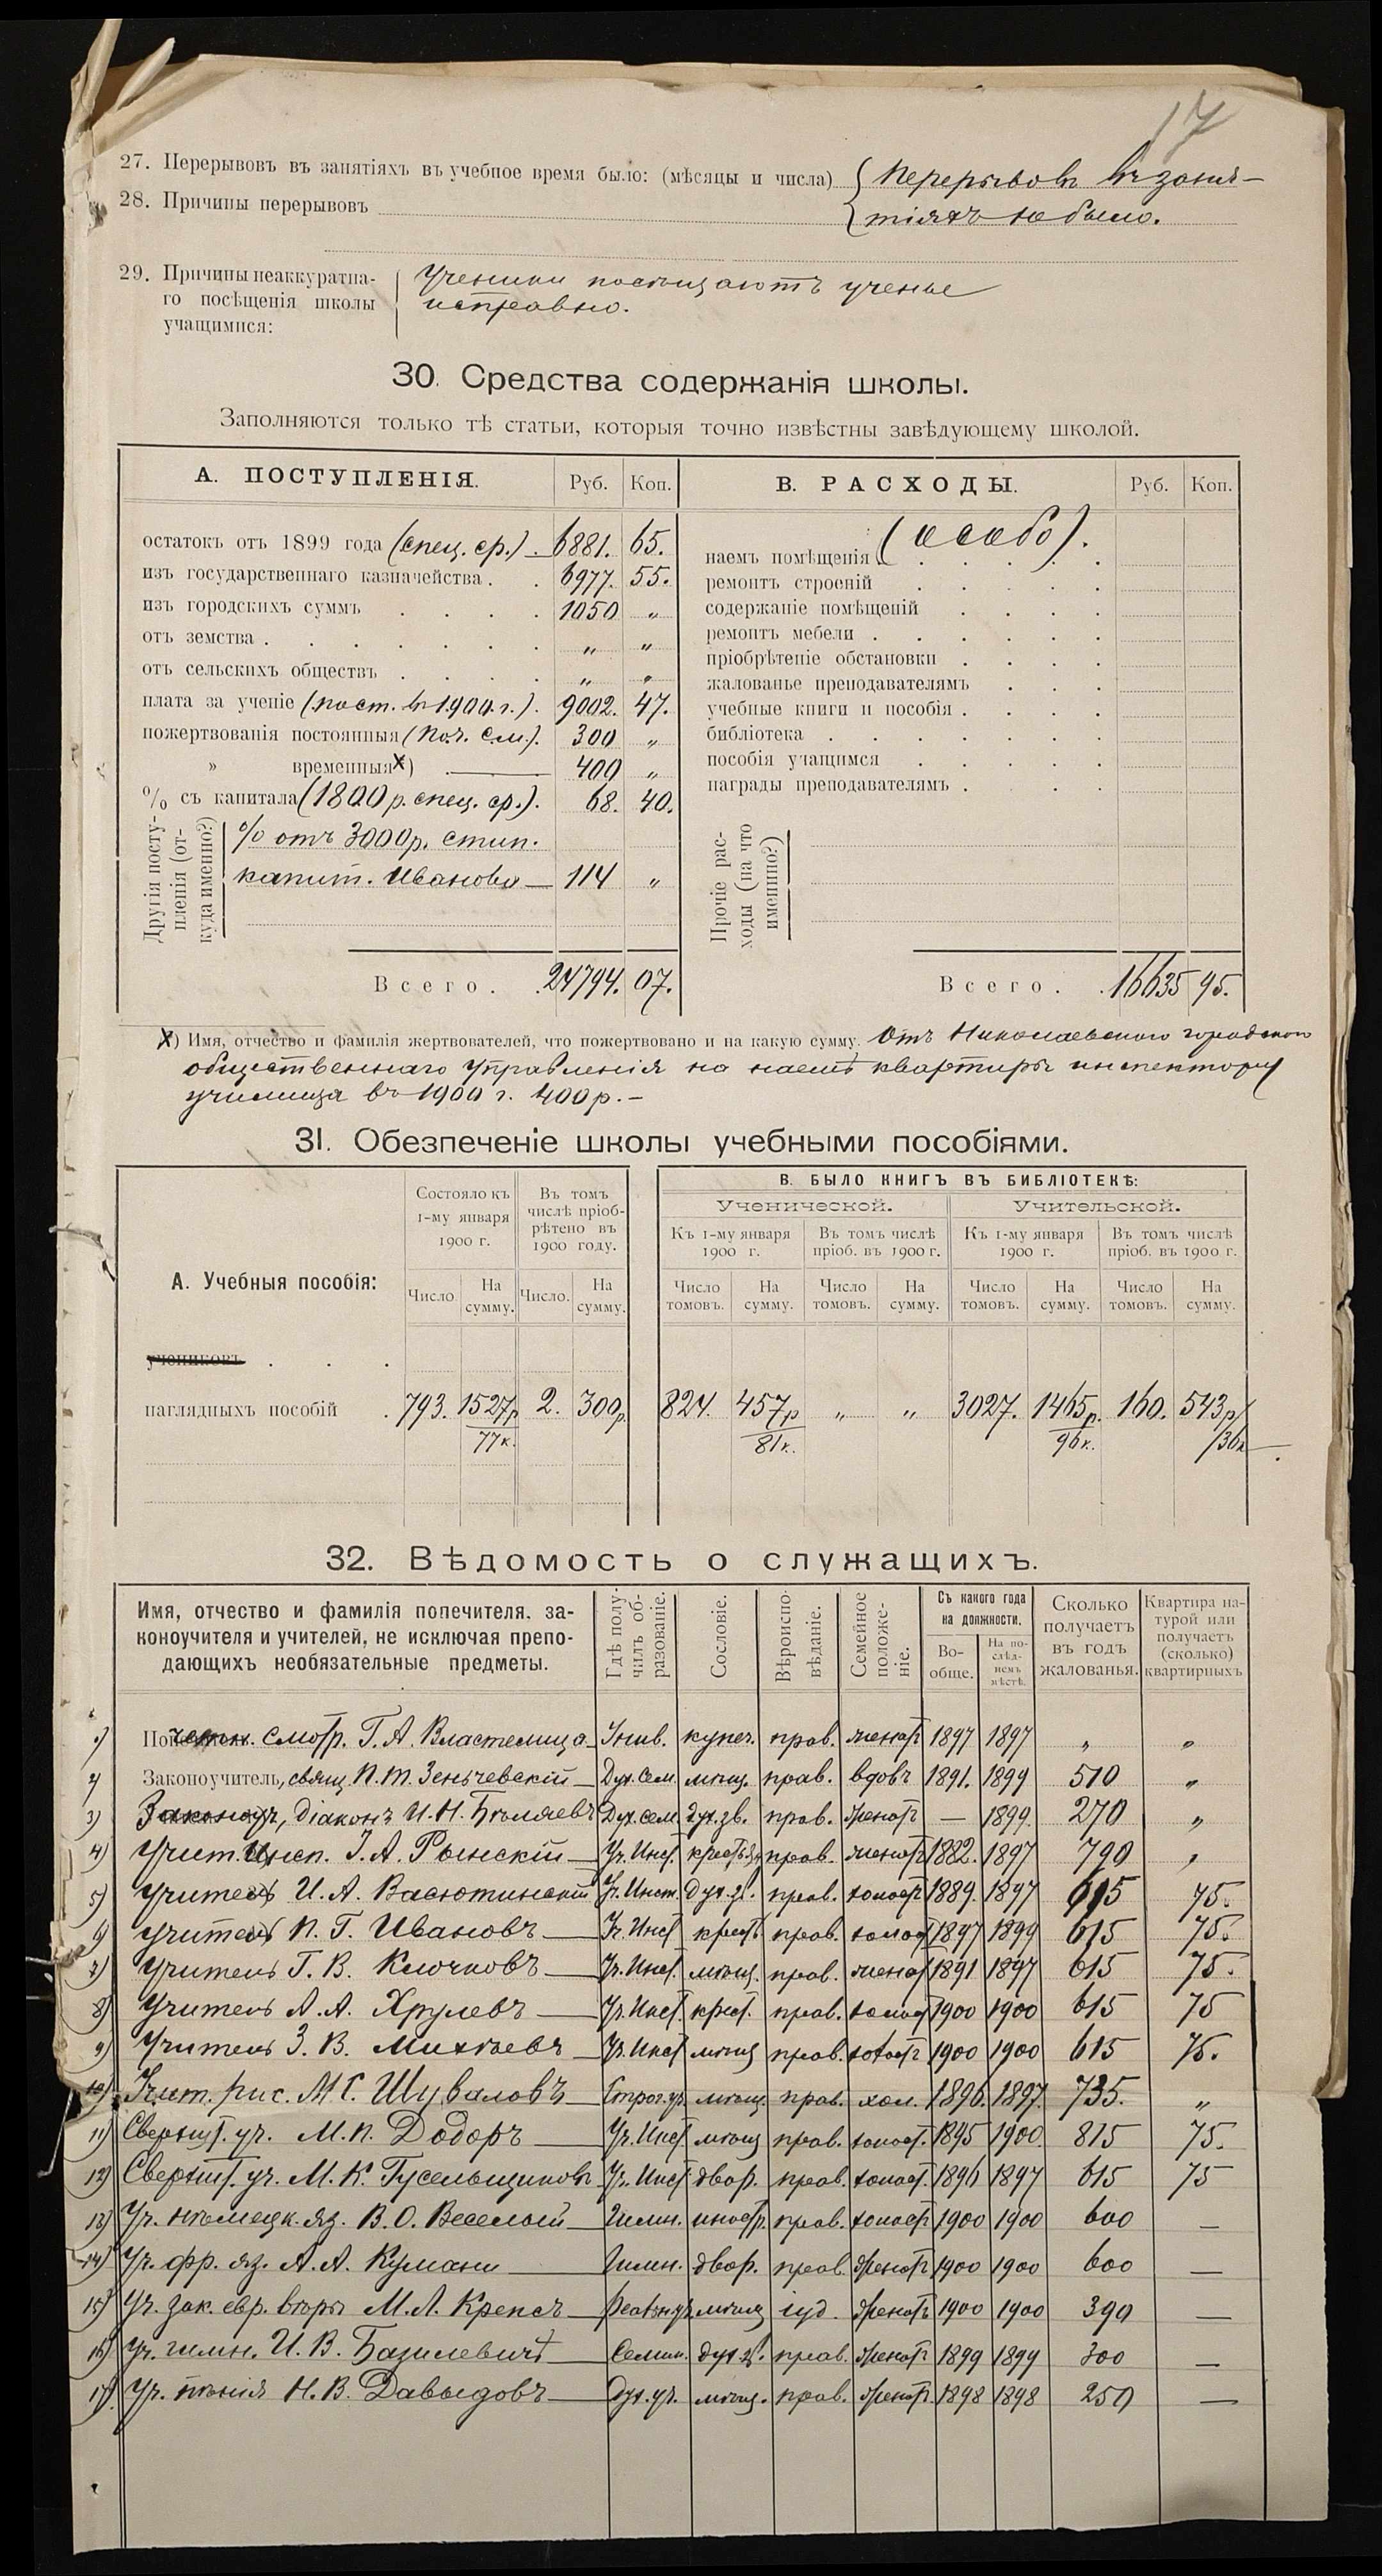 17
27. Перерывовъ въ занятіяхъ въ учебное время было: (мѣсяцы и числа) Перерывовъ въ заня-
28. Причины перерывовъ тіяхъ не было.
29. Причины неаккуратна- Ученики посѣщаютъ ученье
го посѣщенія школы исправно.
учащимися:
30. Средства содержанія школы.
Заполняются только тѣ статьи, которыя точно извѣстны завѣдующему школой.
А. ПОСТУПЛЕНІЯ. Руб. Коп. В. РАСХОДЫ. Руб. Коп.
остатокъ отъ 1899 года (спец. ср.) 6881. 65.
изъ государственнаго казначейства 6977. 55.
изъ городскихъ суммъ 1050 „
отъ земства „ „
отъ сельскихъ обществъ „ „
плата за ученіе (пост. въ 1900 г.) 9002. 47.
пожертвованія постоянныя (Поч. См.) 300 „
» временныя х) 400 „
% съ капитала (1800 р. спец. ср.) 68. 40.
Другія посту-
пленія (от-
куда именно?)
% отъ 3000 р. стип.
капит. Иванова 114 „
Всего 24794. 07.
(особо).
наемъ помѣщенія
ремонтъ строеній
содержаніе помѣщеній
ремонтъ мебели
пріобрѣтеніе обстановки
жалованье преподавателямъ
учебныя книги и пособія
библіотека
пособія учащимся
награды преподавателямъ
Прочіе рас-
ходы (на что
именно?)
Всего 16635 95.
х) Имя, отчество и фамилія жертвователей, что пожертвовано и на какую сумму. Отъ Николаевскаго городского
общественнаго Управленія на наемъ квартиры инспектору
училища въ 1900 г. 400 р. –
31. Обезпеченіе школы учебными пособіями.
А. Учебныя пособія:
Состояло къ 1-му января 1900 г.
Въ томъ числѣ пріоб-рѣтено въ 1900 году.
Число. На сумму. Число. На сумму.
В. БЫЛО КНИГЪ ВЪ БИБЛІОТЕКѢ:
Ученической. Учительской.
Къ 1-му января 1900 г. Въ томъ числѣ пріоб. въ 1900 г. Къ 1-му января 1900 г. Въ томъ числѣ пріоб. въ 1900 г.
Число томовъ. На сумму. Число томовъ. На сумму. Число томовъ. На сумму. Число томовъ. На сумму.
учениковъ
наглядныхъ пособій 793. 1527 р 77 к. 2. 300 р 824. 457 р 81 к. „ „ 3027. 1465 р. 96 к. 160. 543 р
32. Вѣдомость о служащихъ.
Имя, отчество и фамилія попечителя, за-
коноучителя и учителей, не исключая препо-
дающихъ необязательные предметы.
Гдѣ полу-чилъ об-разованіе. Сословіе. Вѣроиспо-вѣданіе. Семейное положе-ніе.
Съ какого года на должности. Во-обще. На по-слѣд-немъ мѣстѣ.
Сколько получаетъ въ годъ жалованья. Квартира на-турой или получаетъ (сколько) квартирныхъ
1) Почетн. смотр. Г. А. Властелица Унив. купеч. прав. женатъ 1897 1897 „ „
2) Законоучитель, свящ. П. Т. Зеньчевскій Дух. Сем. мѣщ. прав. вдовъ 1891. 1899 510 „
3) Законоуч, діаконъ И. Н. Бѣляевъ Дух. сем. дух. зв. прав. женатъ — 1899. 270 „
4) Учит. Инсп. І. А. Рынскій Уч. Инст. прав. женатъ 1882. 1897 790 „
5) Учитель И. А. Васютинскій Уч. Инст. дух. зв. прав. холостъ 1889. 1897 615 75.
6) Учитель П. Г. Ивановъ Уч. Инст. крест. прав. холост. 1897 1899 615 75.
7) Учитель Г. В. Клочковъ Уч. Инст. мѣщ. прав. женат 1891 1897 615 75.
8) Учитель А. А. Хрулевъ Уч. Инст. крест. прав. холост 1900 1900 615 75
9) Учитель З. В. Михѣевъ Уч. Инст. мѣщ прав. холостъ 1900 1900 615 75.
10) Учит. рис. М. Г. Шуваловъ Строг. уч. мѣщ. прав. хол. 1896. 1897. 735. „
11) Сверхшт. уч. М. П. Додоръ Уч. Инст мѣщ прав. холост. 1895 1900. 815 75.
12) Сверхшт. уч. М. К. Гусельщиковъ Уч. Инст. двор. прав. холост. 1896 1897 615 75
13) Уч. нѣмецк. яз. В. О. Веселый Гимн. иностр. прав. холостъ 1900 1900 600 —
14) Уч. фр. яз. А. А. Кумани Гимн. двор. прав. женатъ 1900 1900 600 —
15) Уч. зак. евр. вѣры М. Л. Крепсъ мѣщ іуд. женатъ 1900 1900 390 —
16) Уч. гимн. И. В. Базилевичъ Семин. дух. зв. прав. женатъ 1899 1899 300 —
17) Уч. пѣнія Н. В. Давыдовъ Дух. уч. мѣщ. прав. женатъ 1898 1898 250 —